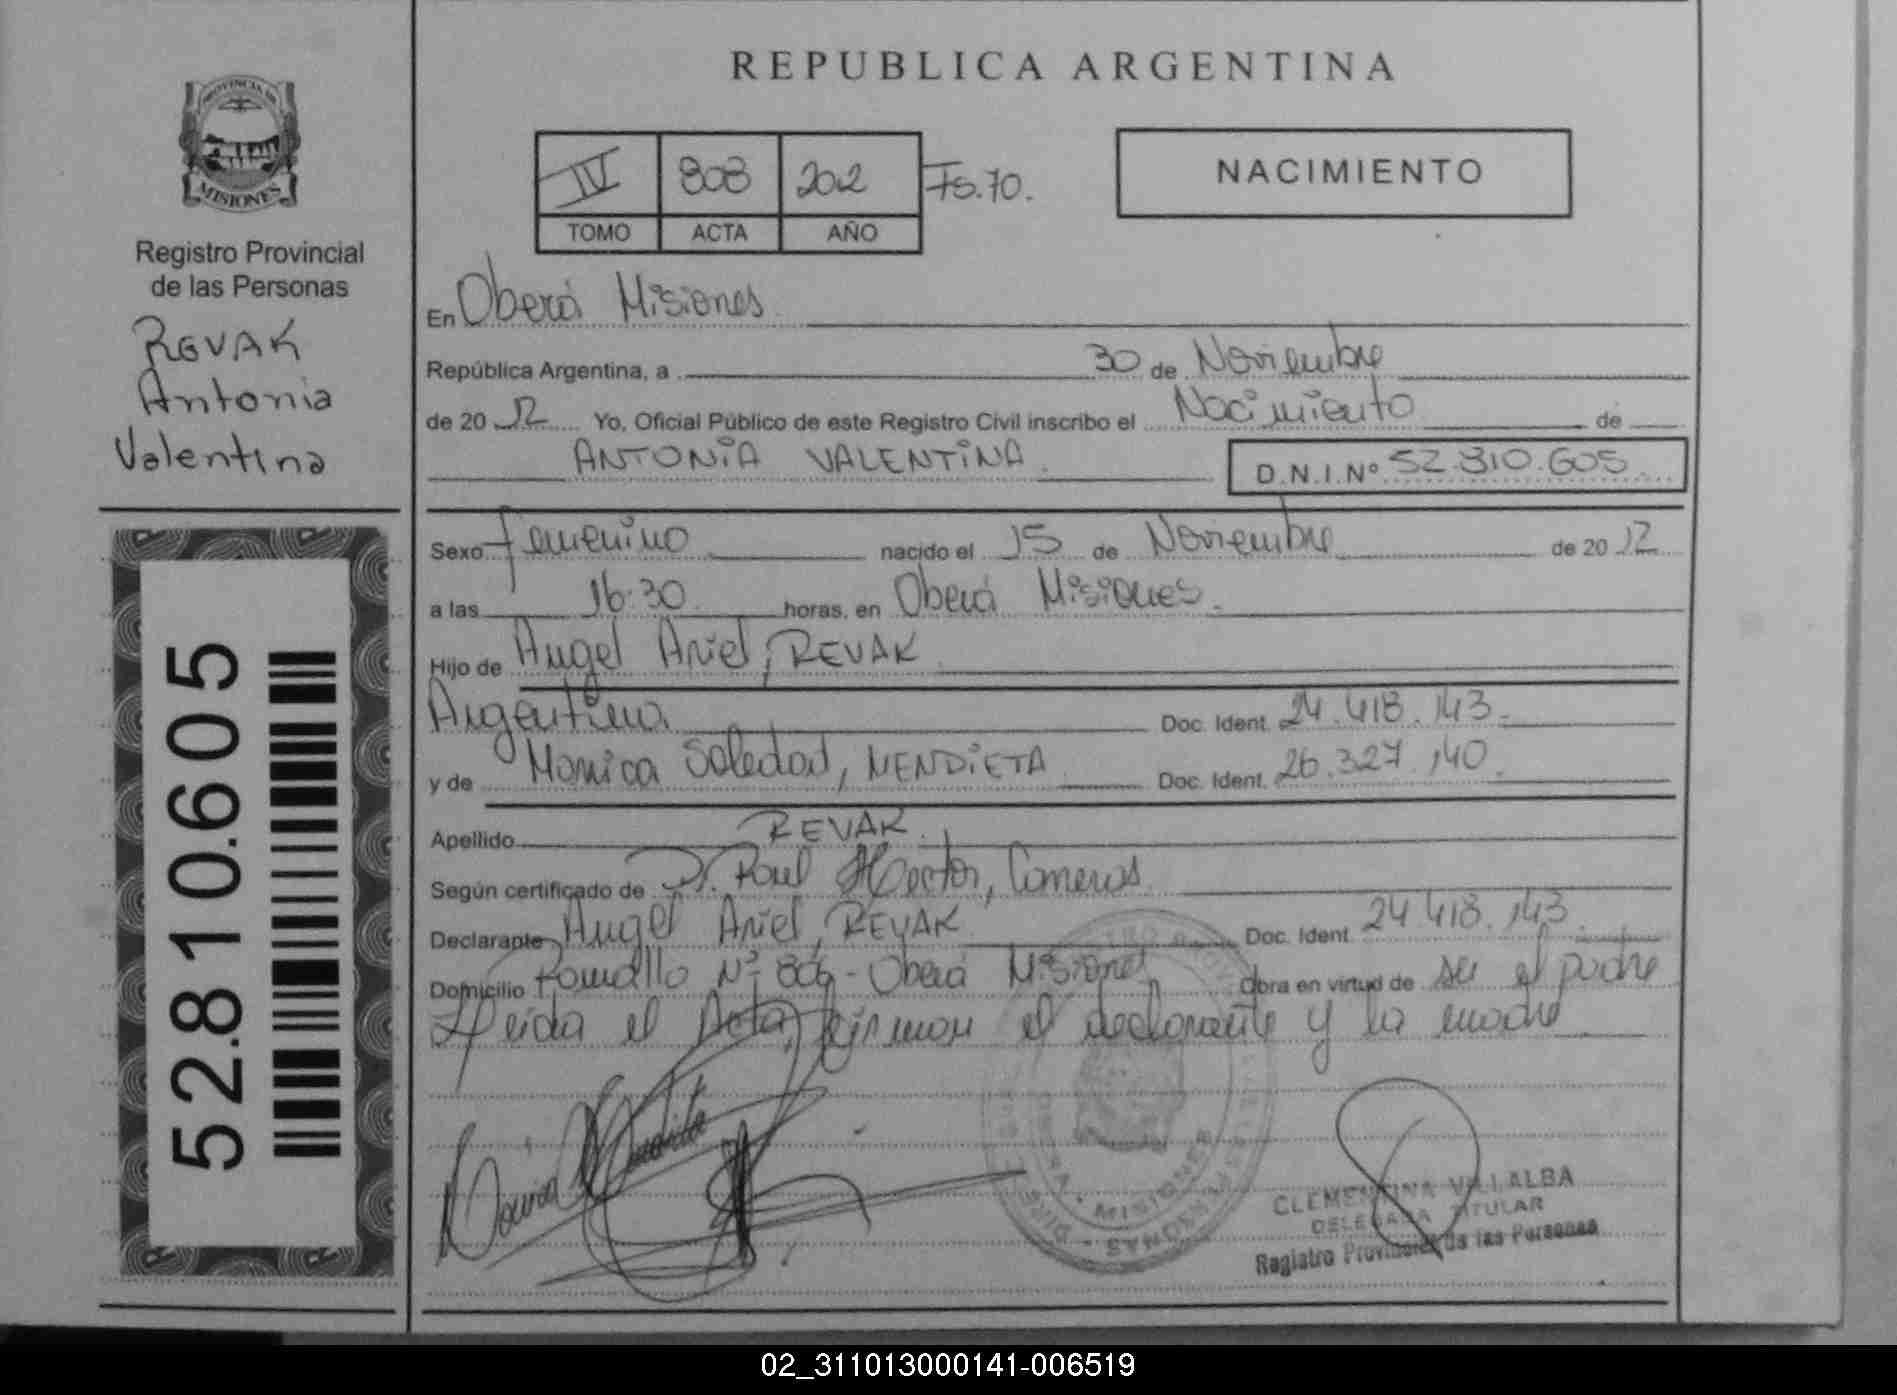 PROVINCIA DE
MISIONES
Registro Provincial
de las Personas
REVAK
Antonia
Valentina
52.810.605
REPUBLICA ARGENTINA
IV 808 2012 Fs.70.
TOMO ACTA AÑO
NACIMIENTO
En Oberá Misiones
República Argentina, a 30 de Noviembre
de 20 12 Yo, Oficial Público de este Registro Civil inscribo el Nacimiento de
ANTONIA VALENTINA. D.N.I.Nº 52.810.605.
Sexo Femenino nacido el 15 de Noviembre de 20 12
a las 16:30 horas, en Oberá Misiones.
Hijo de Angel Ariel, REVAK
Argentina Doc. Ident. 24.418.143.
y de Monica Soledad, MENDIETA Doc. Ident. 26.327.140.
Apellido REVAK.
Según certificado de Dr. Raul Hector,
Declarante Angel Ariel, REVAK Doc. Ident. 24.418.143
Domicilio Nº 806 - Oberá Misiones Obra en virtud de ser el padre
Leida el Acta, firman el declarante y la madre
MISIONES
CLEMENTINA VILLALBA
DELEGADA TITULAR
Registro Provincial de las Personas
02_311013000141-006519